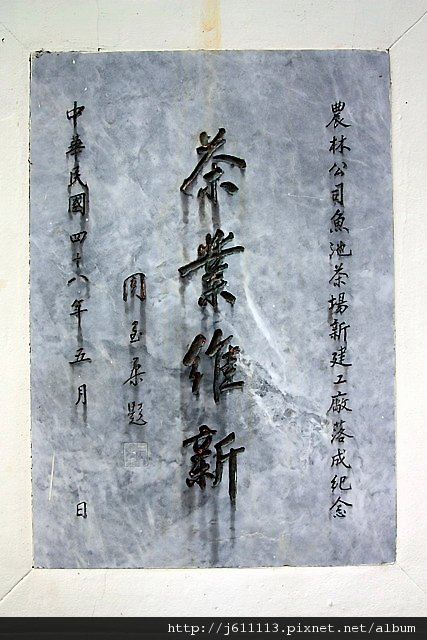 農林公司魚池茶場新建工廠落成紀念
茶業維新
周至柔題
中華民國四十八年五月 日
http://j611113.pixnet.net/album